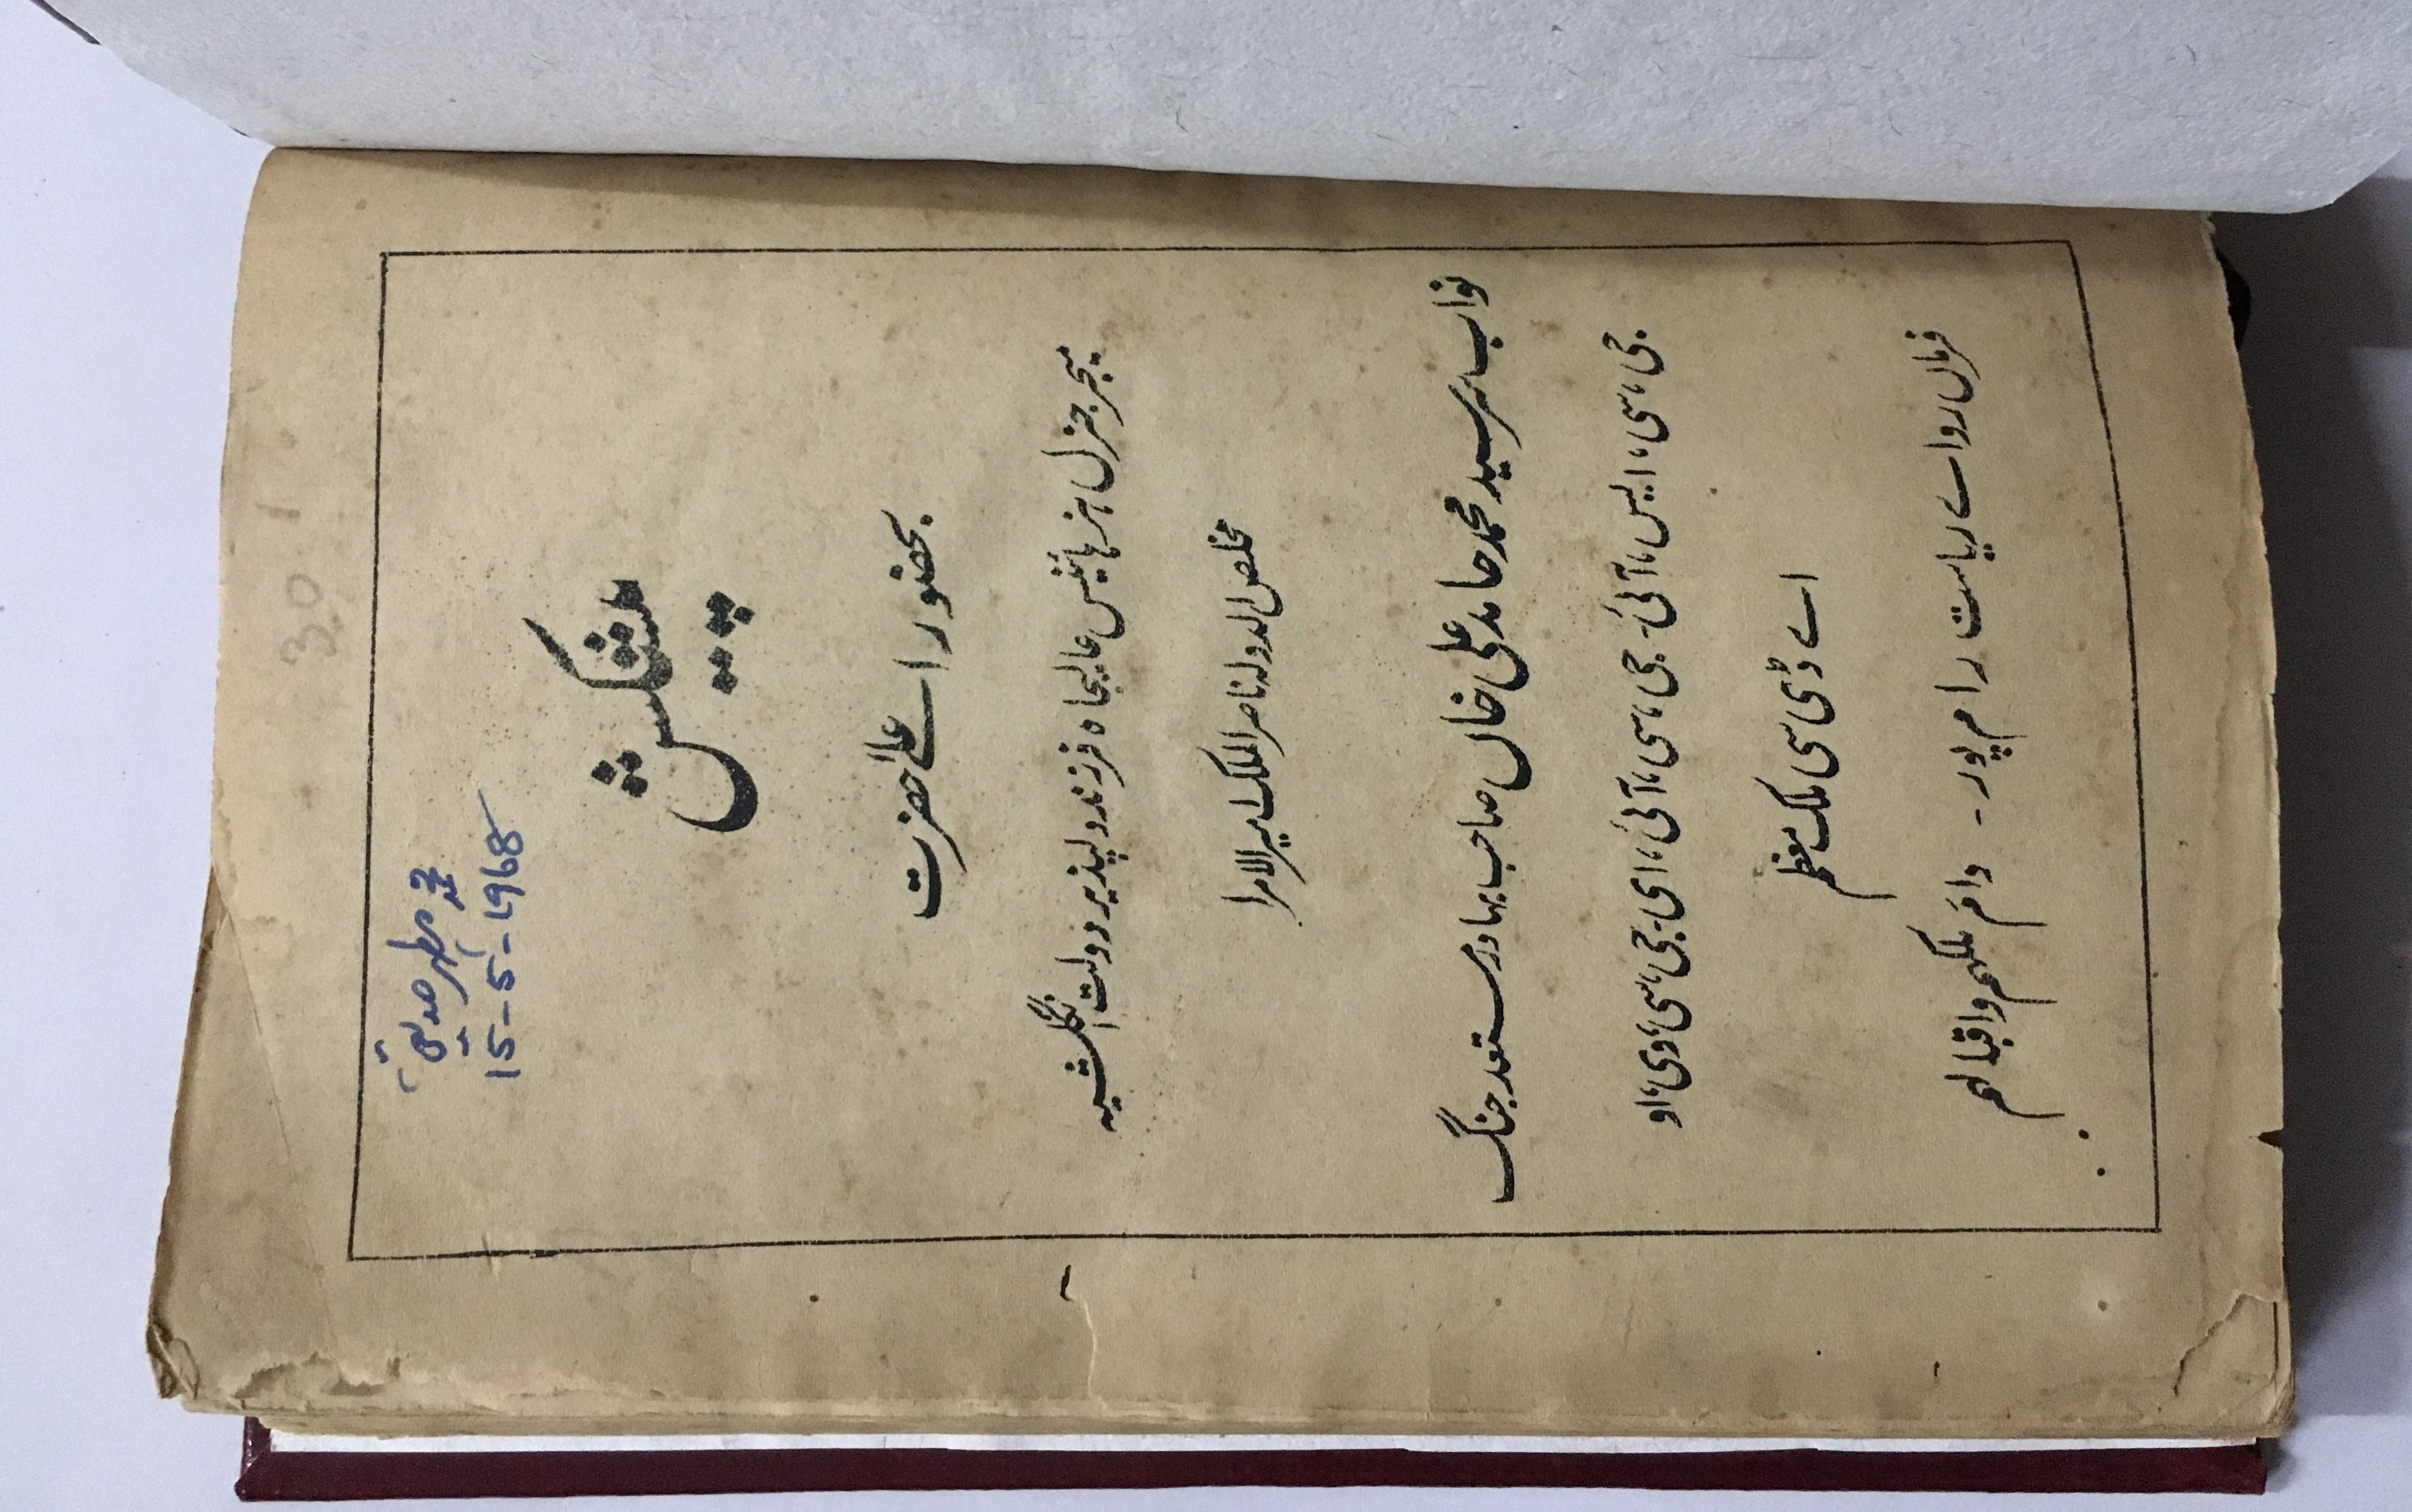 محمد مظہر صدیقی
15-5-1968
پیشکش
بحضور اعلےٰ حضرت
میجر جنرل ہز ہائینس عالیجاہ فرزند دلپذیر دولت انگلشیہ
مخلص الدولہ ناصر الملک امیر الامرا
نواب سر سید محمد حامد علی خاں صاحب بہادر مستعد جنگ
جی، سی، ایس، آئی۔ جی، سی، آئی، ای۔ جی سی، وی، او
اے ڈی سی ملک معظم
فرماں رواے ریاست رام پور۔ دام ملکہم واقبالہم
30